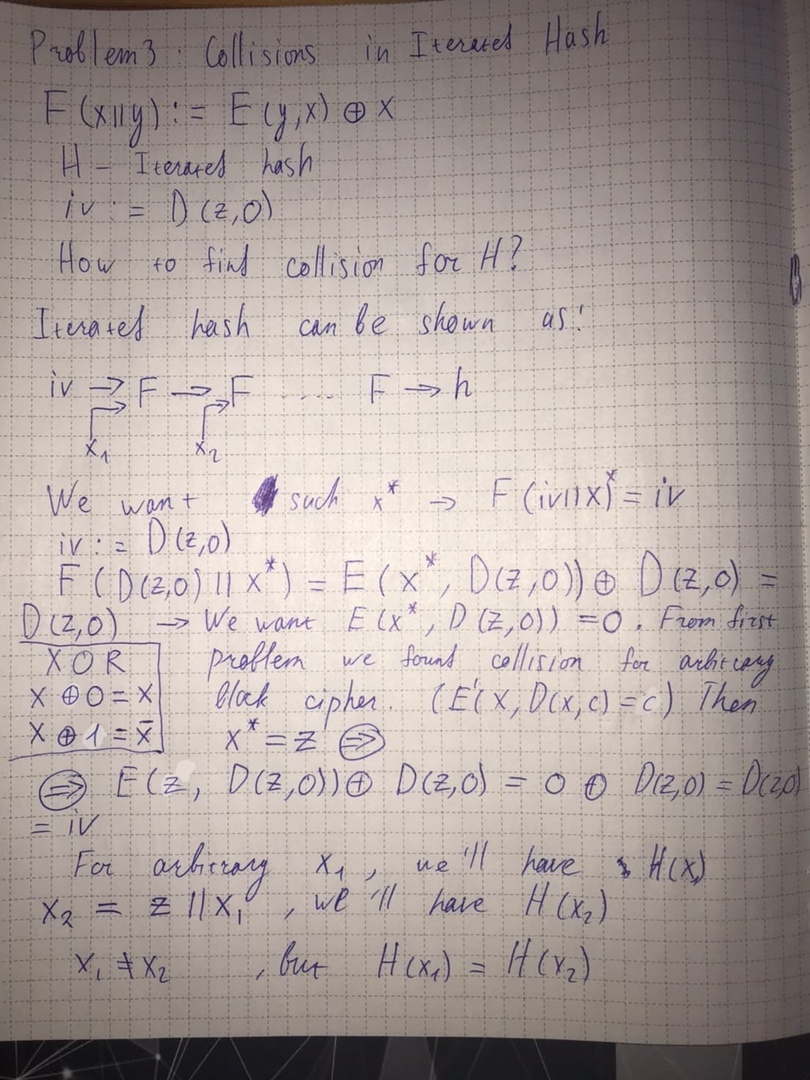 Problem 3 : Collisions in Iterated Hash
F(x||y) := E(y,x) ⊕ x
H - Iterated hash
iv := D(z,0)
How to find collision for H?
Iterated hash can be shown as:
iv → F → F ..... F → h
x₁ x₂
We want such x* → F(iv||x)* = iv
iv := D(z,0)
F(D(z,0)||x*) = E(x*, D(z,0)) ⊕ D(z,0) =
D(z,0) → We want E(x*, D(z,0)) = 0. From first
XOR problem we found collision for arbitrary
x ⊕ 0 = x block cipher. (E'(x, D(x,c) = c) Then
x ⊕ 1 = x̄ x* = z ⇒
⇒ E(z, D(z,0)) ⊕ D(z,0) = 0 ⊕ D(z,0) = D(z,0)
= iv
For arbitrary x₁, we'll have H(x)
x₂ = z||x₁, we'll have H(x₂)
x₁ ≠ x₂ , but H(x₁) = H(x₂)